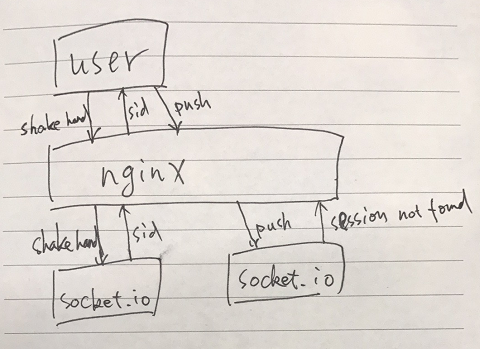 user
shake hand
sid
push
nginx
shake hand
sid
push
session not found
socket.io
socket.io